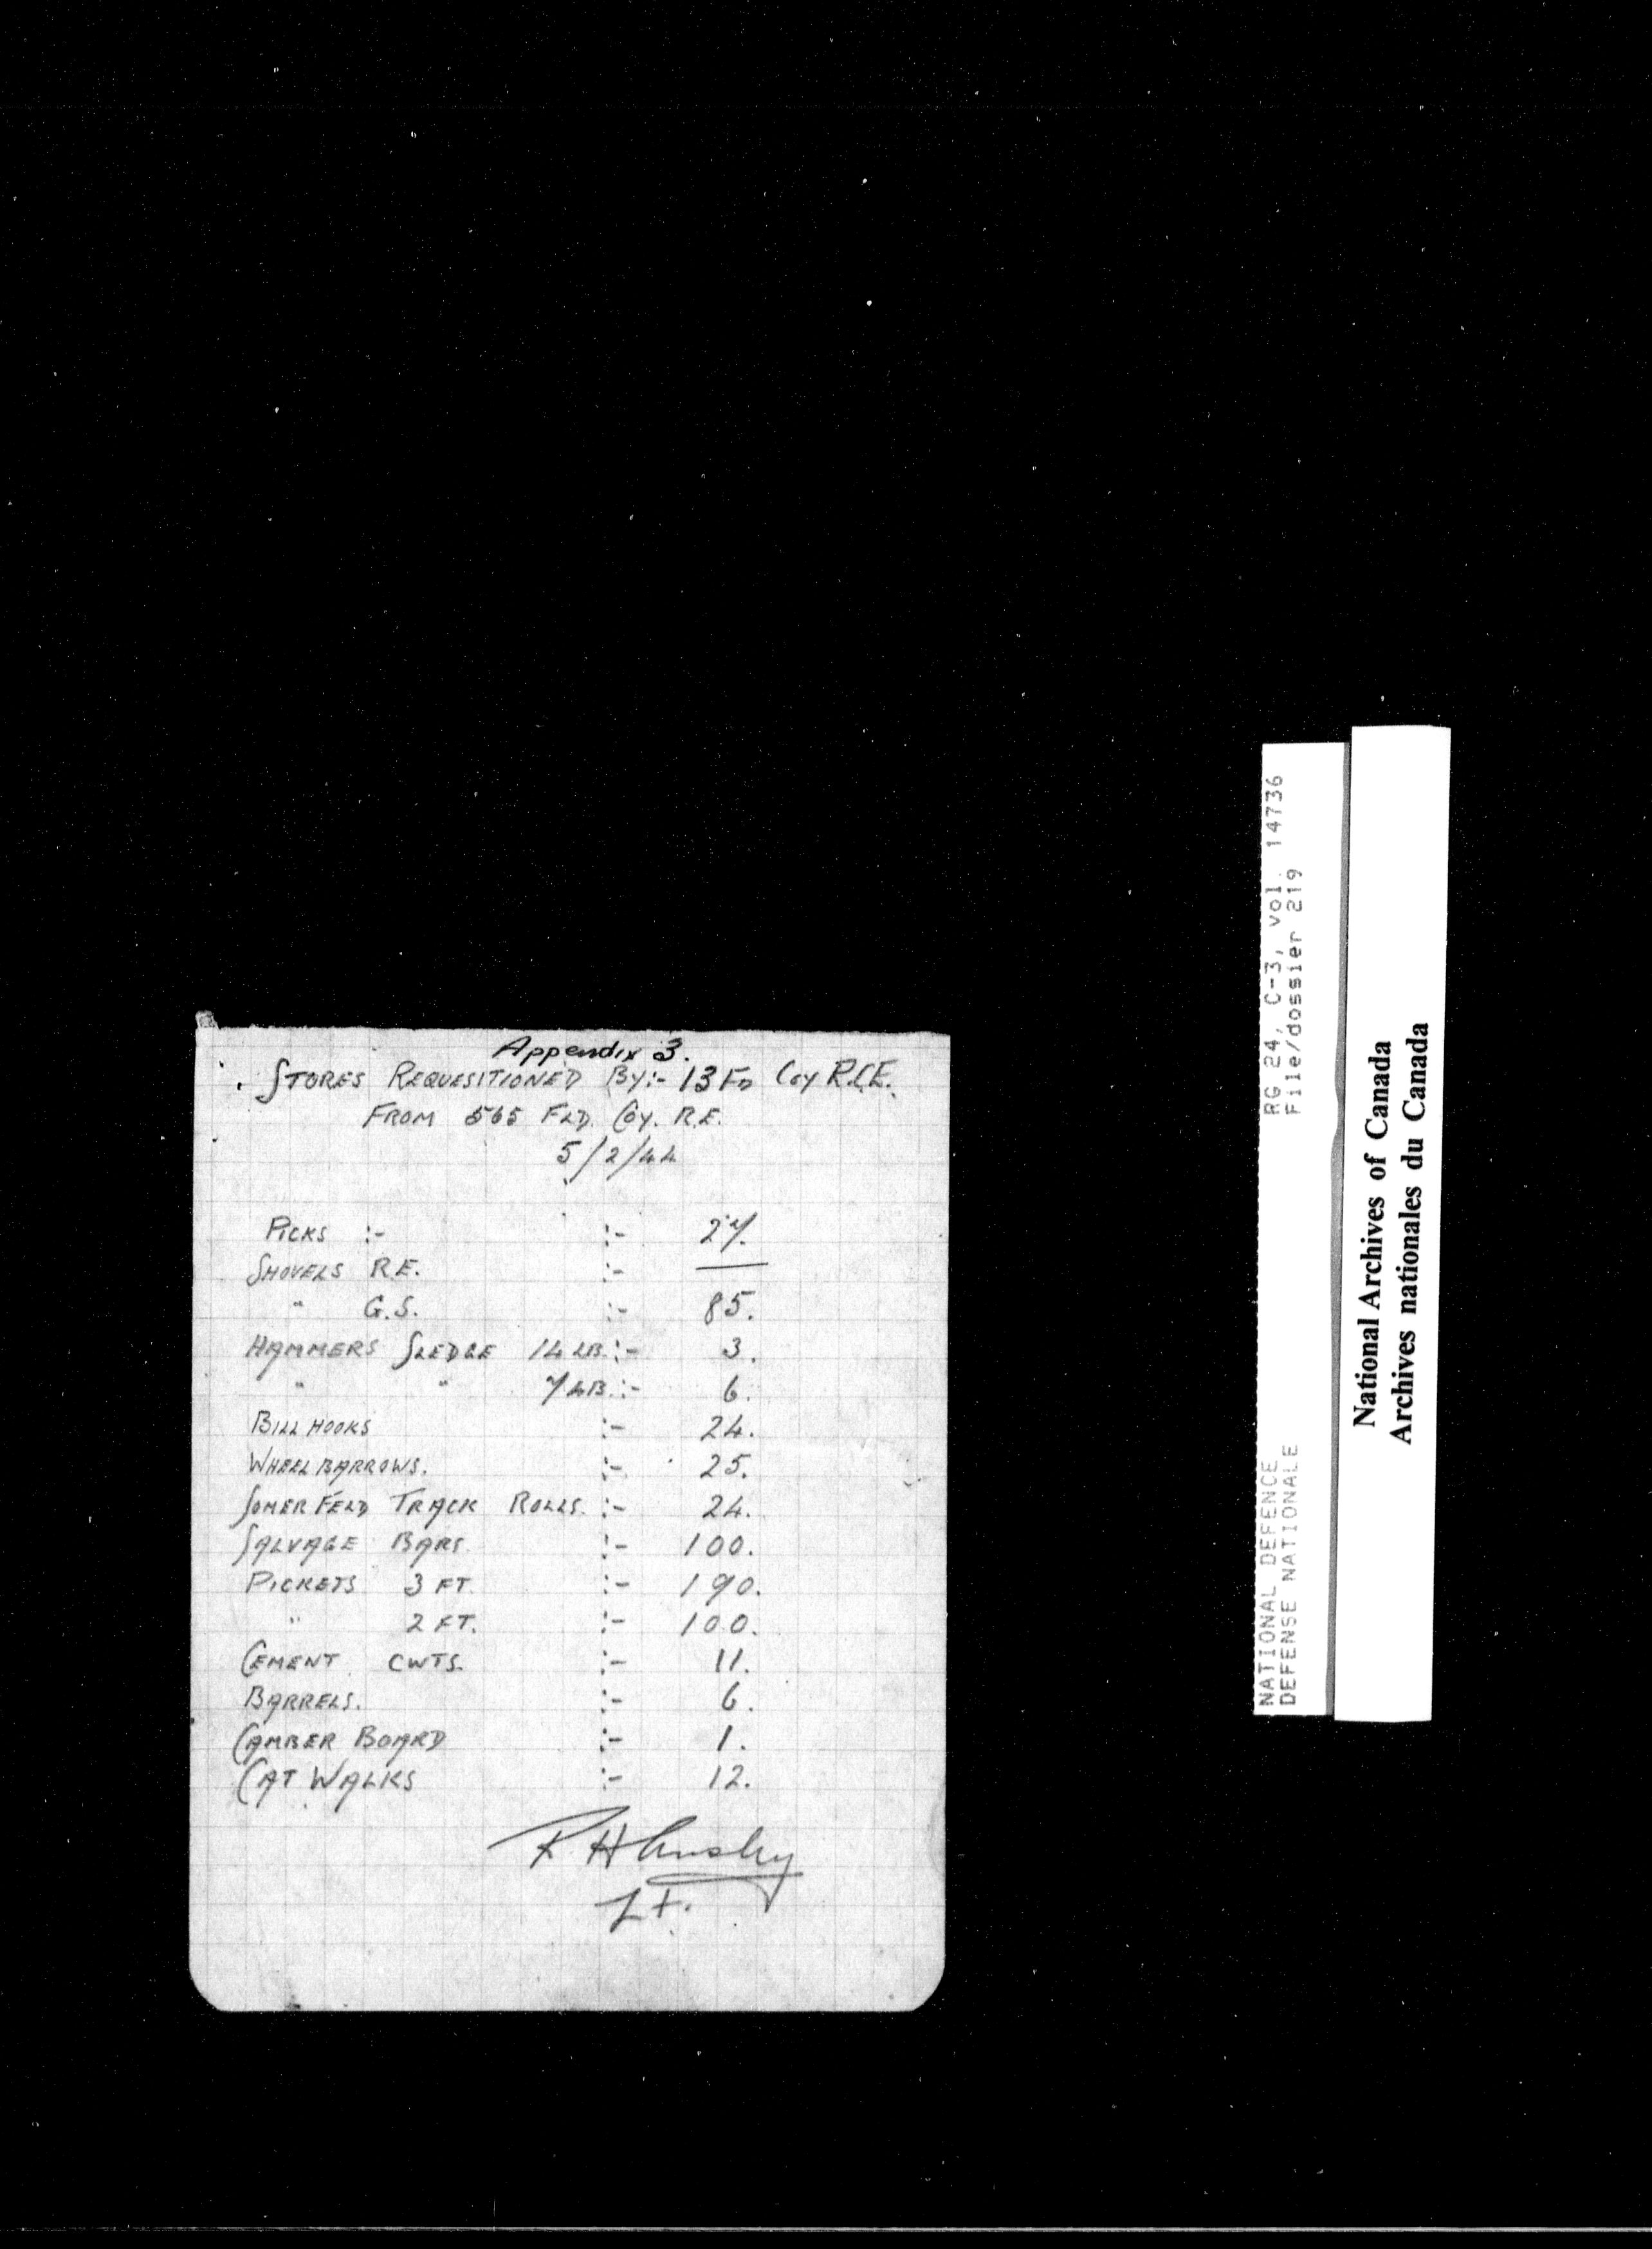 Appendix 3.
STORES REQUESITIONED BY:- 13 FD COY R.C.E.
FROM 565 FLD. COY. R.E.
5/2/44
PICKS :- :- 27.
SHOVELS R.E. :- —
" G.S. :- 85.
HAMMERS SLEDGE 14 LB. :- 3.
" " 7 LB. :- 6.
BILL HOOKS :- 24.
WHEELBARROWS. :- 25.
SOMERFELD TRACK ROLLS. :- 24.
SALVAGE BARS. :- 100.
PICKETS 3 FT. :- 190.
" 2 FT. :- 100.
CEMENT CWTS. :- 11.
BARRELS. :- 6.
CAMBER BOARD :- 1.
CAT WALKS :- 12.
Lt.
NATIONAL DEFENCE RG 24, C-3, vol. 14736
DEFENSE NATIONALE File/dossier 219
National Archives of Canada
Archives nationales du Canada